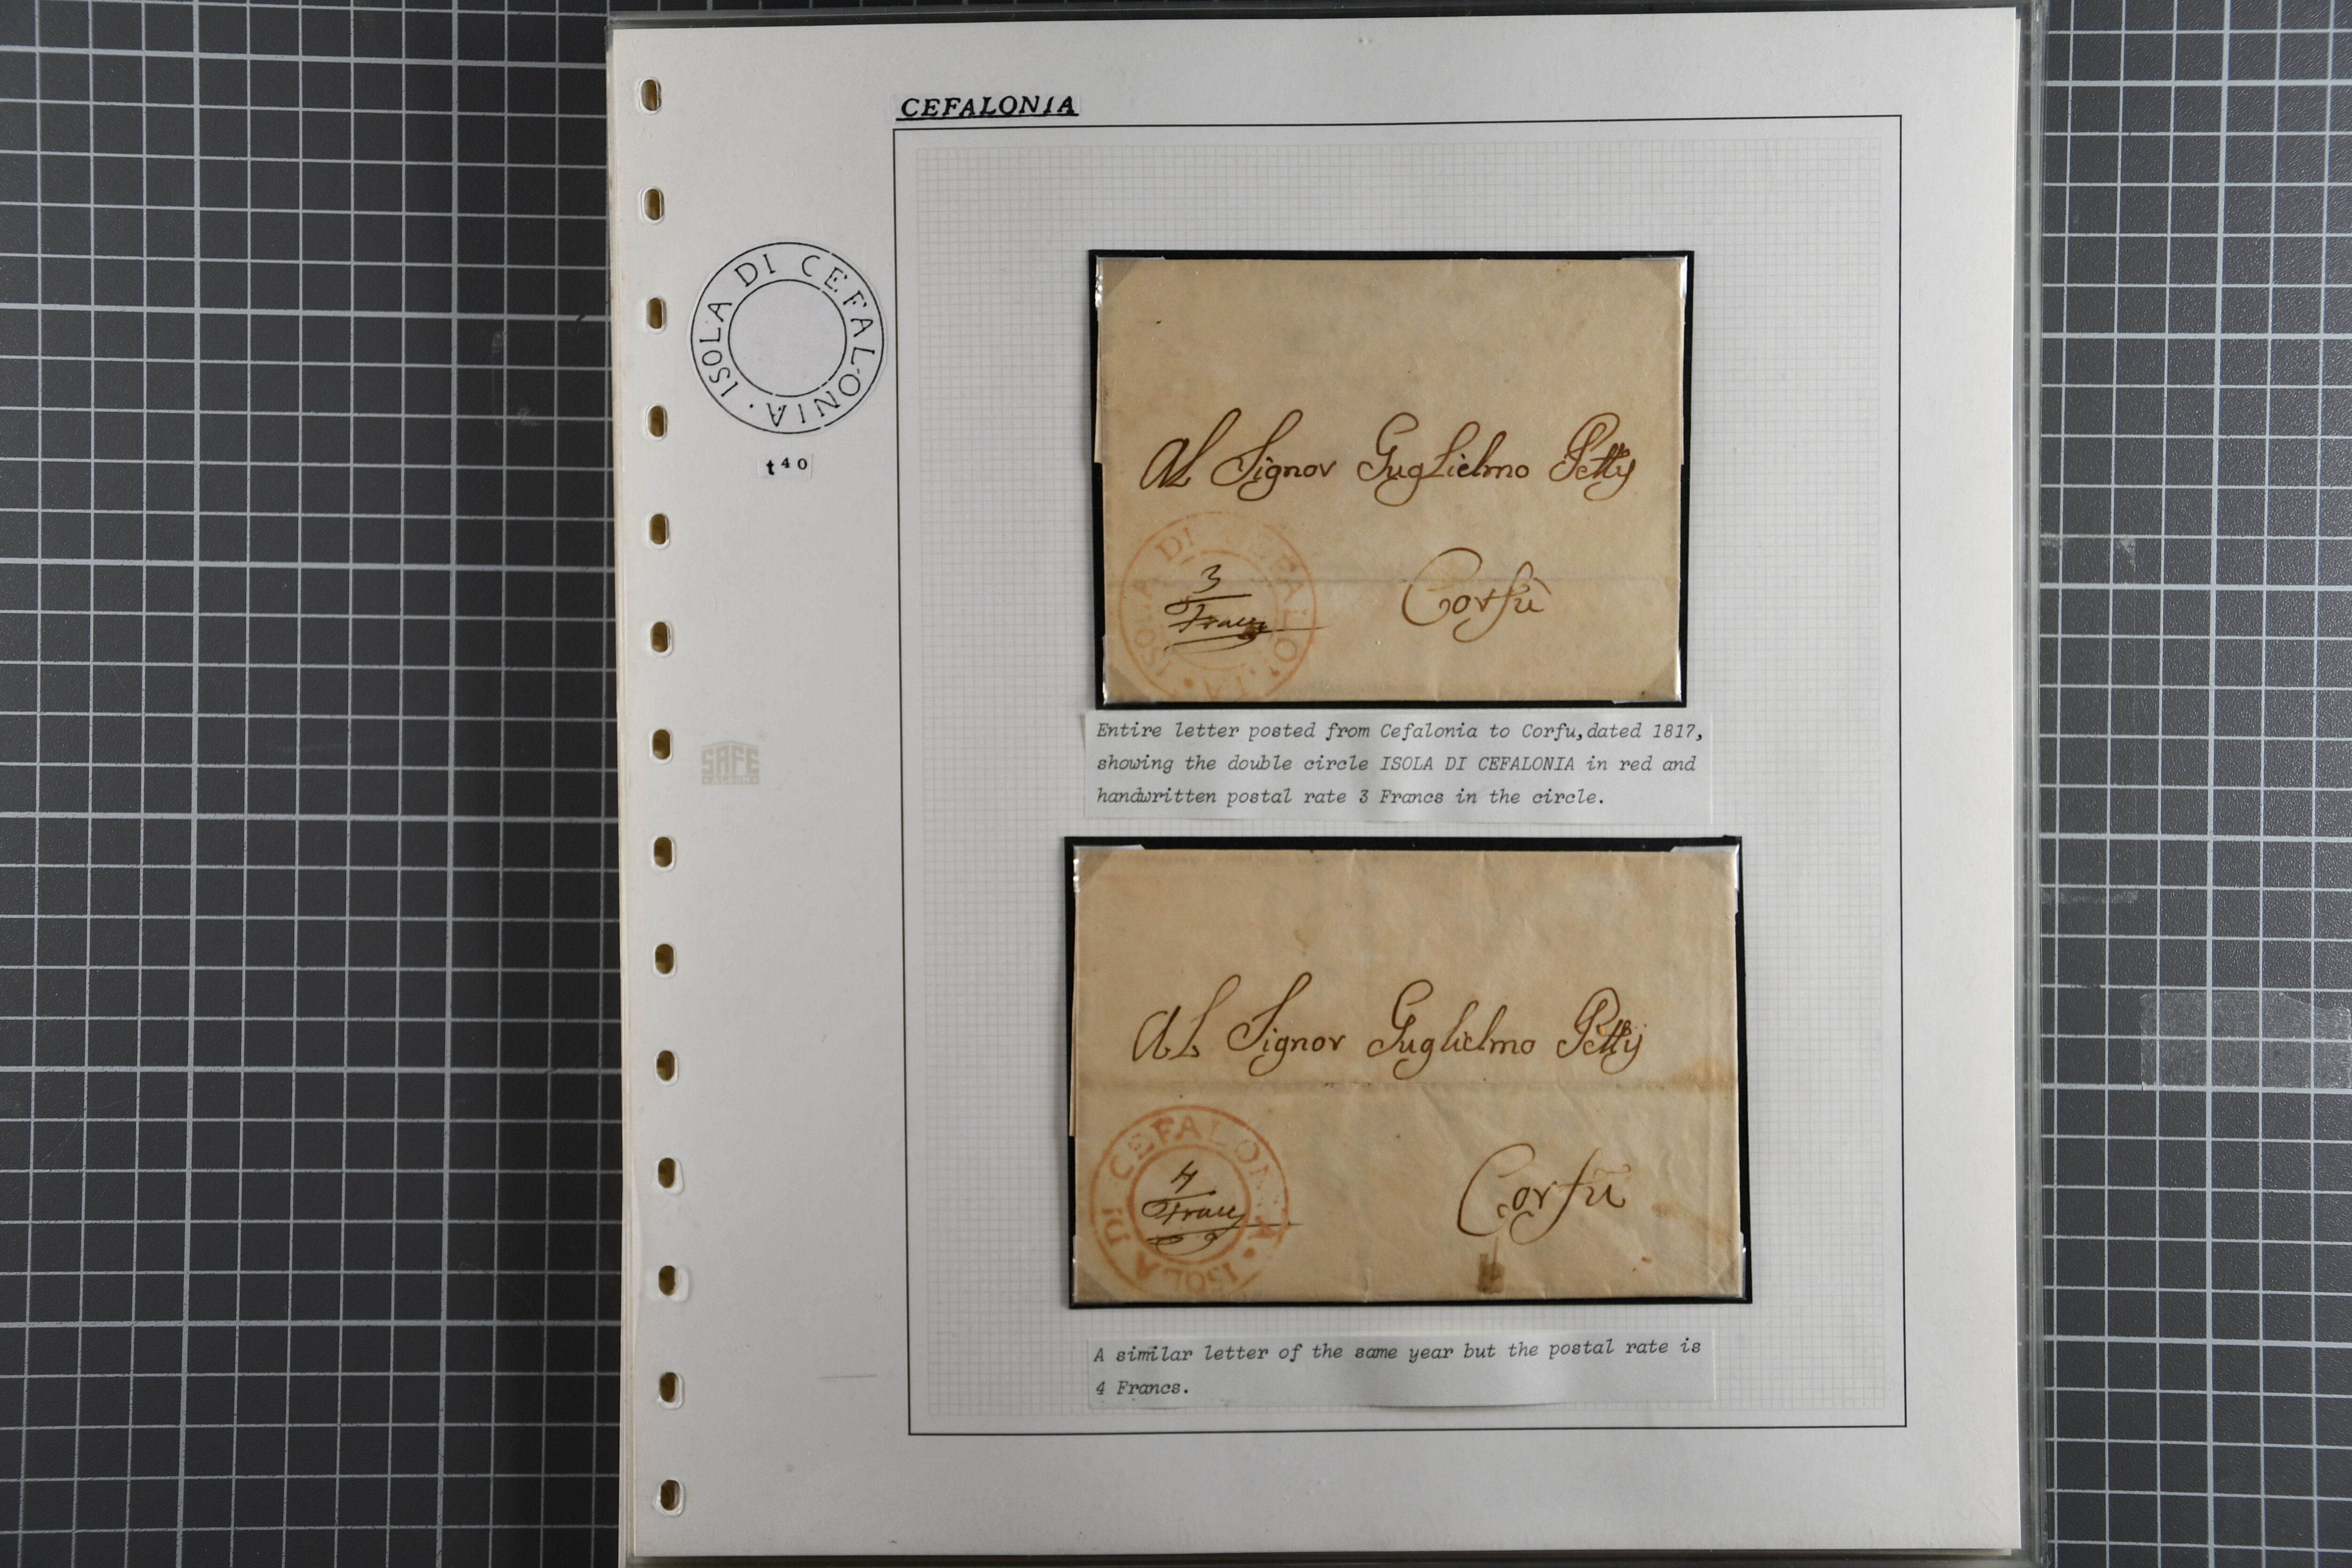 CEFALONIA
ISOLA DI CEFALONIA ·
t40
Al Signor Guglielmo Petty
ISOLA DI CEFALONIA ·
3
Corfù
Entire letter posted from Cefalonia to Corfu,dated 1817,
showing the double circle ISOLA DI CEFALONIA in red and
handwritten postal rate 3 Francs in the circle.
SAFE
Al Signor Guglielmo Petty
ISOLA DI CEFALONIA ·
4
Corfù
A similar letter of the same year but the postal rate is
4 Francs.